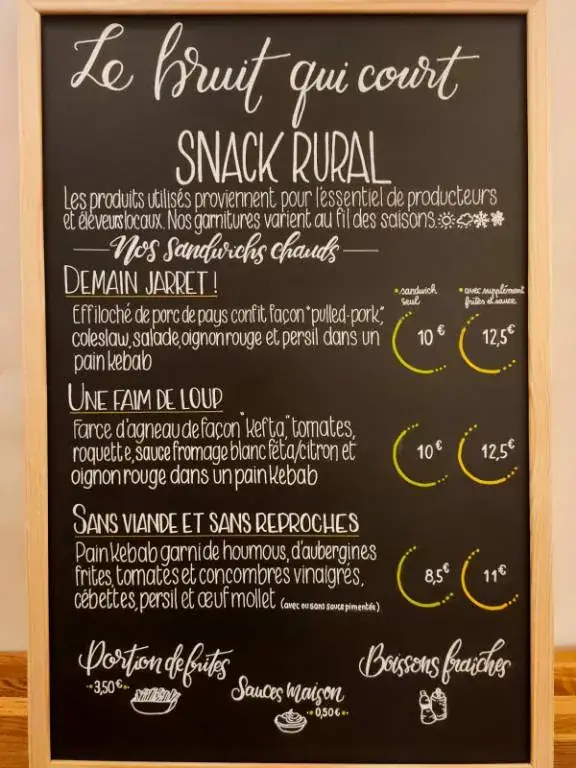 Le bruit qui court
SNACK RURAL
Les produits utilisés proviennent pour l'essentiel de producteurs
et éleveurs locaux. Nos garnitures varient au fil des saisons.
Nos Sandwichs chauds
DEMAIN JARRET !
• sandwich seul
• avec supplément frites et sauce
Effiloché de porc de pays confit façon "pulled-pork",
coleslaw, salade, oignon rouge et persil dans un
pain kebab
10 €
12,5€
UNE FAIM DE LOUP
Farce d'agneau de façon "kefta", tomates,
roquette, sauce fromage blanc féta/citron et
oignon rouge dans un pain kebab
10 €
12,5€
SANS VIANDE ET SANS REPROCHES
Pain kebab garni de houmous, d'aubergines
frites, tomates et concombres vinaigrés,
cébettes, persil et œuf mollet (avec ou sans sauce pimentée)
8,5€
11€
Portion de frites
3,50€
Sauces maison
0,50€
Boissons fraîches